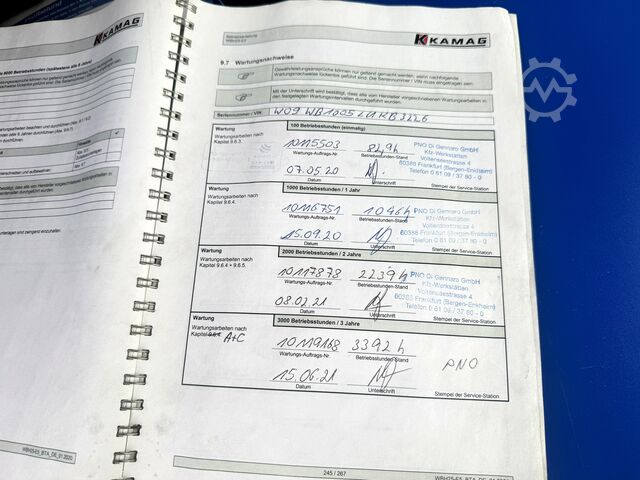 KAMAG
Betriebsanleitung
WBH25-E5
KAMAG
9.7 Wartungsnachweise
Gewährleistungsansprüche können nur geltend gemacht werden, wenn nachfolgende
Wartungsnachweise lückenlos geführt sind. Die Seriennummer / VIN muss eingetragen sein.
Mit der Unterschrift wird bestätigt, dass alle vom Hersteller vorgeschriebenen Wartungsarbeiten in
den festgelegten Wartungsintervallen durchgeführt wurden.
Seriennummer / VIN:
Wartung
100 Betriebsstunden (einmalig)
Wartungsarbeiten nach
Kapitel 9.6.3.
10115503
Wartungs-Auftrags-Nr.
Betriebsstunden-Stand
07.05.20
Datum
Unterschrift
PNO Di Gennaro GmbH
Kfz-Werkstätten
Voltenseestrasse 4
60388 Frankfurt (Bergen-Enkheim)
Telefon 0 61 09 / 37 60 - 0
Stempel der Service-Station
Wartung
1000 Betriebsstunden / 1 Jahr
Wartungsarbeiten nach
Kapitel 9.6.4.
10116751
1096h
Wartungs-Auftrags-Nr.
Betriebsstunden-Stand
15.09.20
Datum
Unterschrift
PNO Di Gennaro GmbH
Kfz-Werkstätten
Voltenseestrasse 4
60388 Frankfurt (Bergen-Enkheim)
Telefon 0 61 09 / 37 60 - 0
Stempel der Service-Station
Wartung
2000 Betriebsstunden / 2 Jahre
Wartungsarbeiten nach
Kapitel 9.6.4 + 9.6.5.
10117878
2239h
Wartungs-Auftrags-Nr.
Betriebsstunden-Stand
08.02.21
Datum
Unterschrift
PNO Di Gennaro GmbH
Kfz-Werkstätten
Voltenseestrasse 4
60388 Frankfurt (Bergen-Enkheim)
Telefon 0 61 09 / 37 60 - 0
Stempel der Service-Station
Wartung
3000 Betriebsstunden / 3 Jahre
Wartungsarbeiten nach
Kapitel A+C
10119168
3392h
Wartungs-Auftrags-Nr.
Betriebsstunden-Stand
15.06.21
Datum
Unterschrift
PNO
Stempel der Service-Station
245 / 267
WBH25-E5_BTA_DE_01.2020